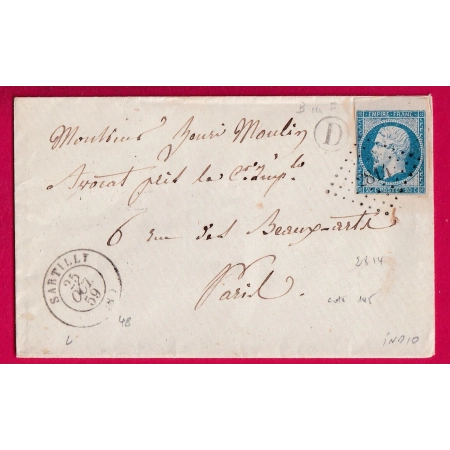 B
D
EMPIRE FRANC
Monsieur Henri Moulin
Avocat près la Cr Imple
6 rue des Beaux-arts
Paris
SARTILLY
25
OCT
59
48
INDIO